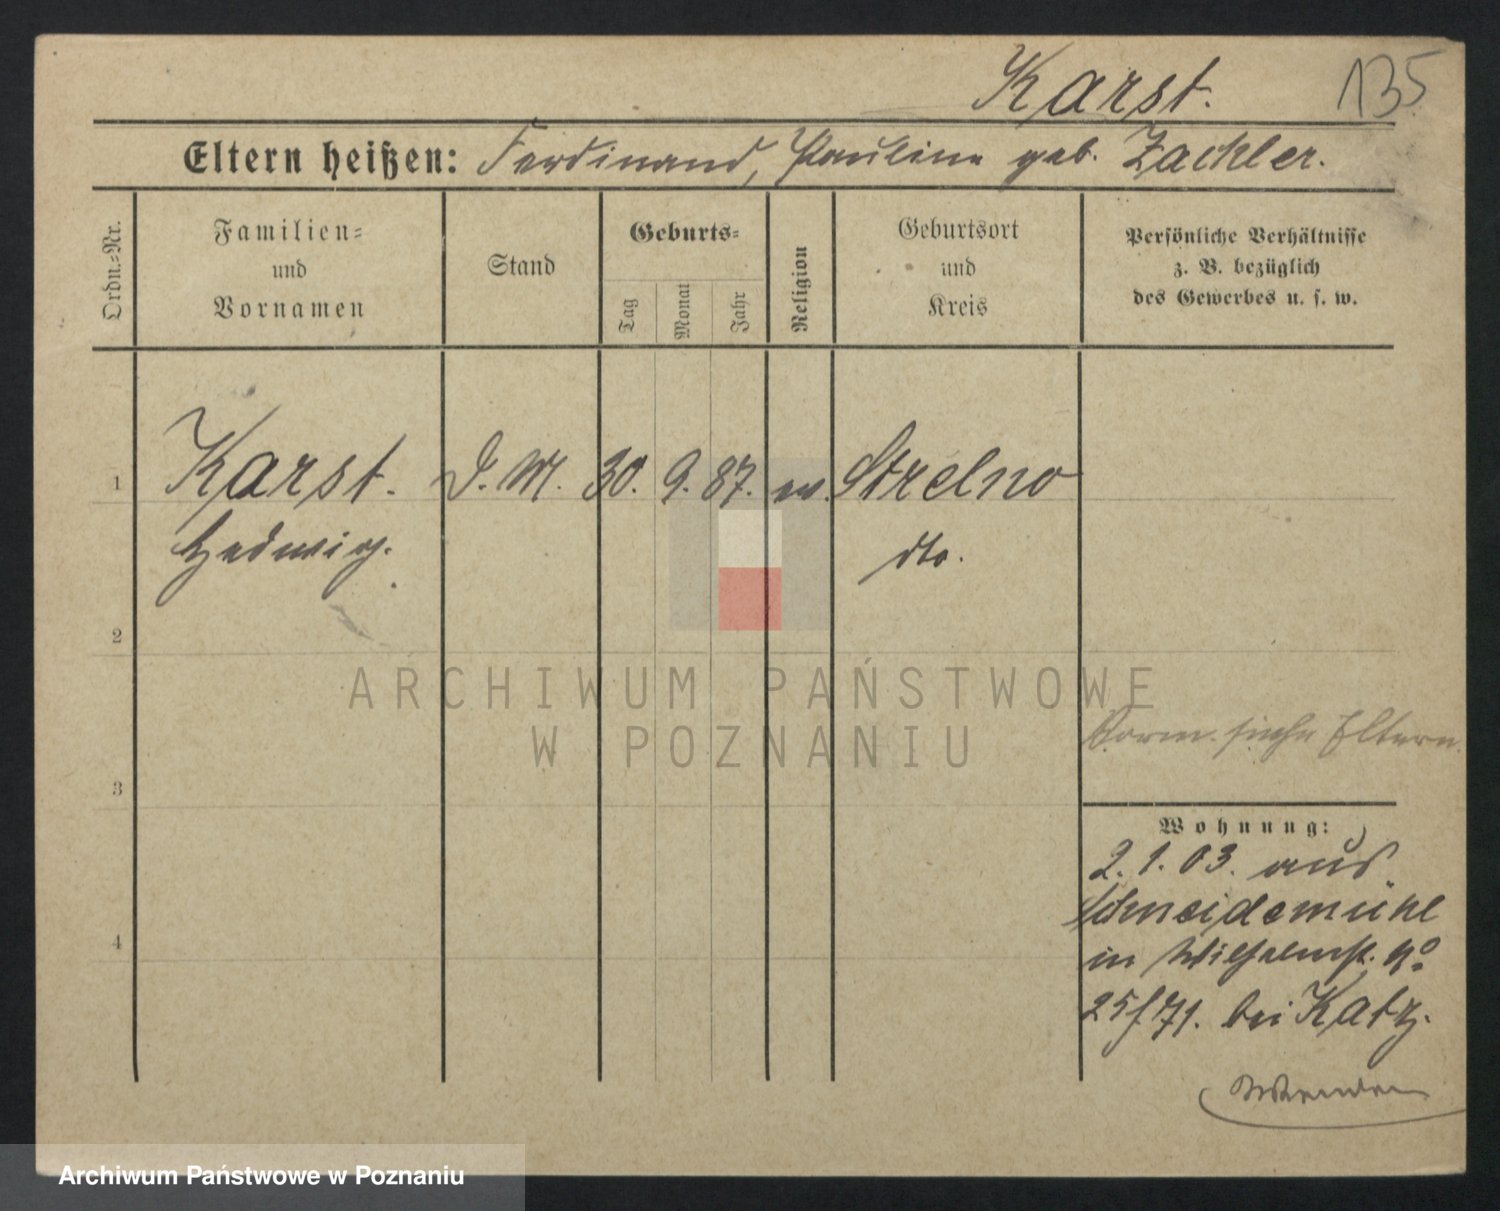 Karst. 135
Eltern heißen: Ferdinand, Pauline geb. Zachler.
Ordn.=Nr.
Familien=
und
Vornamen
Stand
Geburts=
Tag
Monat
Jahr
Religion
Geburtsort
und
Kreis
Persönliche Verhältnisse
z. B. bezüglich
des Gewerbes u. s. w.
1 Karst. D. M. 30. 9. 87. ev. Strelno
Hedwig. dto.
2
ARCHIWUM PAŃSTWOWE
W POZNANIU
siehe Eltern
3
Wohnung:
2. 1. 03. aus
Schneidemühl
in Wilhelmst. No
25/71. bei Katz.
4
Wenden
Archiwum Państwowe w Poznaniu